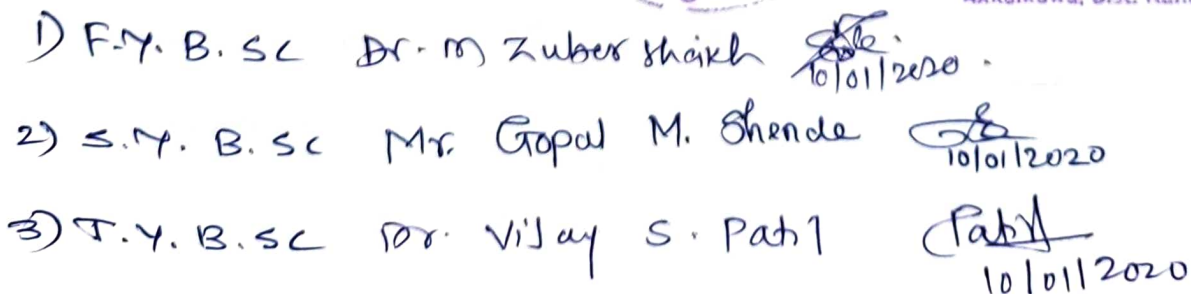 1) F.Y. B. Sc Dr. M Zuber Shaikh 10/01/2020.
2) S.Y. B. Sc Mr. Gopal M. Shende 10/01/2020
3) T.Y. B. Sc Dr. Vijay S. Patil Patil 10/01/2020